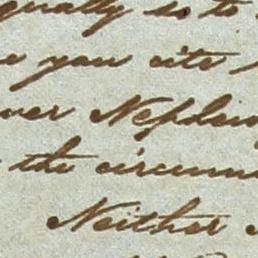 equally is to
you cite
over Nephew
the circum
Neither